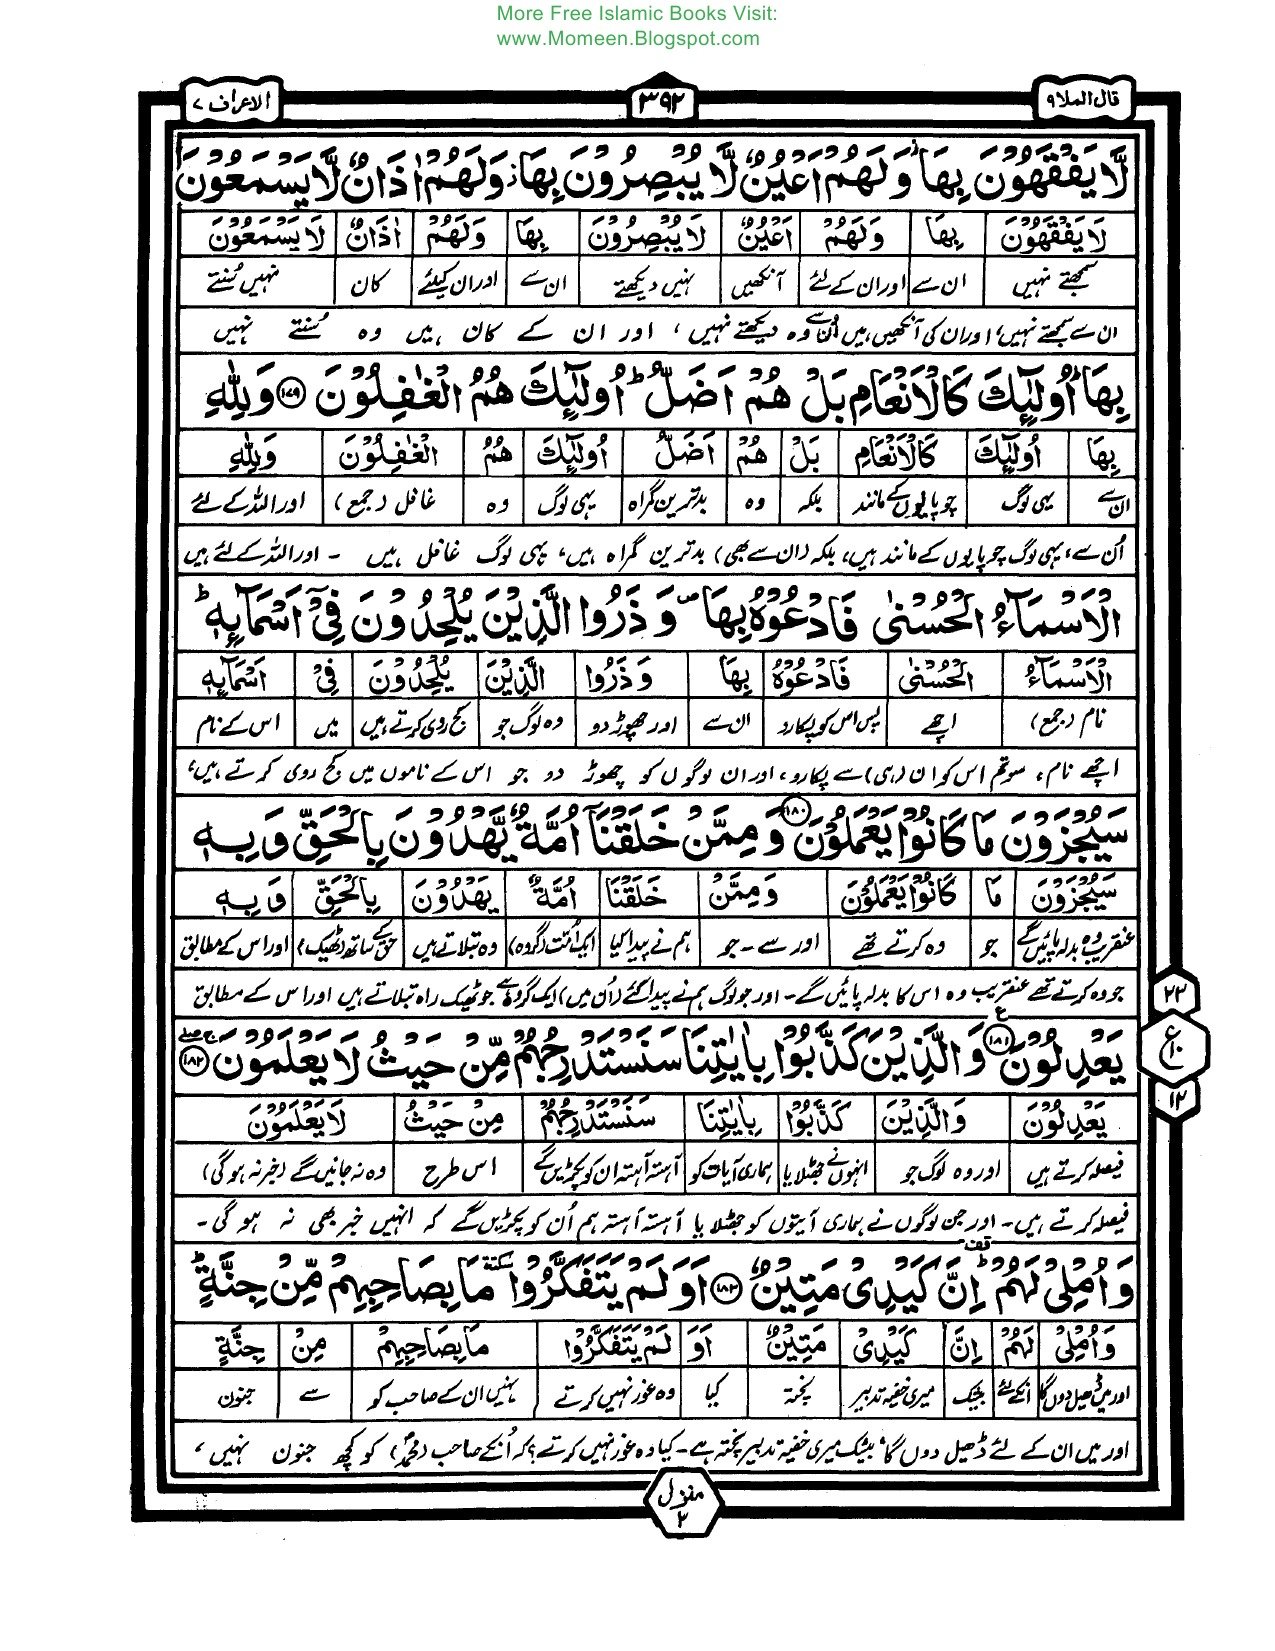 More Free Islamic Books Visit:
www.Momeen.Blogspot.com
قال الملا ٩
٣٩٢
الاعراف ٧
لَّا يَفْقَهُوْنَ بِهَا ۫ وَلَهُمْ اَعْيُنٌ لَّا يُبْصِرُوْنَ بِهَا ۫ وَلَهُمْ اٰذَانٌ لَّا يَسْمَعُوْنَ
لَا يَفْقَهُوْنَ بِهَا وَلَهُمْ اَعْيُنٌ لَا يُبْصِرُوْنَ بِهَا وَلَهُمْ اٰذَانٌ لَا يَسْمَعُوْنَ
سمجھتے نہیں ان سے اور ان کے لئے آنکھیں نہیں دیکھتے ان سے اور ان کیلئے کان نہیں سُنتے
ان سے سمجھتے نہیں، اور ان کی آنکھیں ہیں اُن سے وہ دیکھتے نہیں، اور ان کے کان ہیں وہ سُنتے نہیں
بِهَا ؕ اُولٰٓئِكَ كَالْاَنْعَامِ بَلْ هُمْ اَضَلُّ ؕ اُولٰٓئِكَ هُمُ الْغٰفِلُوْنَ ﴿١٧٩﴾ وَلِلّٰهِ
بِهَا اُولٰٓئِكَ كَالْاَنْعَامِ بَلْ هُمْ اَضَلُّ اُولٰٓئِكَ هُمُ الْغٰفِلُوْنَ وَلِلّٰهِ
ان سے یہی لوگ چوپایوں کے مانند بلکہ وہ بدترین گمراہ یہی لوگ وہ غافل (جمع) اور اللہ کے لئے
اُن سے، یہی لوگ چوپایوں کے مانند ہیں، بلکہ (ان سے بھی) بدترین گمراہ ہیں، یہی لوگ غافل ہیں ۔ اور اللہ کے لئے ہیں
الْاَسْمَآءُ الْحُسْنٰى فَادْعُوْهُ بِهَا ۪ وَذَرُوا الَّذِيْنَ يُلْحِدُوْنَ فِيْۤ اَسْمَآئِهٖ ؕ
الْاَسْمَآءُ الْحُسْنٰى فَادْعُوْهُ بِهَا وَذَرُوا الَّذِيْنَ يُلْحِدُوْنَ فِيْ اَسْمَآئِهٖ
نام (جمع) اچھے پس اس کو پکارو ان سے اور چھوڑ دو وہ لوگ جو کج روی کرتے ہیں میں اس کے نام
اچھے نام، سو تم اس کو ان (ہی) سے پکارو، اور ان لوگوں کو چھوڑ دو جو اس کے ناموں میں کج روی کرتے ہیں،
سَيُجْزَوْنَ مَا كَانُوْا يَعْمَلُوْنَ ﴿١٨٠﴾ وَمِمَّنْ خَلَقْنَاۤ اُمَّةٌ يَّهْدُوْنَ بِالْحَقِّ وَبِهٖ
سَيُجْزَوْنَ مَا كَانُوْا يَعْمَلُوْنَ وَمِمَّنْ خَلَقْنَا اُمَّةٌ يَهْدُوْنَ بِالْحَقِّ وَبِهٖ
عنقریب وہ بدلہ پائیں گے جو وہ کرتے تھے اور سے ۔ جو ہم نے پیدا کیا ایک اُمت (گروہ) وہ بتلاتے ہیں حق کے ساتھ (ٹھیک) اور اس کے مطابق
جو وہ کرتے تھے عنقریب وہ اس کا بدلہ پائیں گے ۔ اور جو لوگ ہم نے پیدا کئے (اُن میں) ایک گروہ ہے جو ٹھیک راہ بتلاتے ہیں اور اس کے مطابق
٢٢
ع
١٠
١٢
يَعْدِلُوْنَ ﴿١٨١﴾ ع وَالَّذِيْنَ كَذَّبُوْا بِاٰيٰتِنَا سَنَسْتَدْرِجُهُمْ مِّنْ حَيْثُ لَا يَعْلَمُوْنَ ﴿١٨٢﴾
يَعْدِلُوْنَ وَالَّذِيْنَ كَذَّبُوْا بِاٰيٰتِنَا سَنَسْتَدْرِجُهُمْ مِنْ حَيْثُ لَا يَعْلَمُوْنَ
فیصلہ کرتے ہیں اور وہ لوگ جو انہوں نے جھٹلایا ہماری آیات کو آہستہ آہستہ ان کو پکڑیں گے اس طرح وہ نہ جانیں گے (خبر نہ ہوگی)
فیصلہ کرتے ہیں ۔ اور جن لوگوں نے ہماری آیتوں کو جھٹلایا آہستہ آہستہ ہم اُن کو پکڑیں گے کہ انہیں خبر بھی نہ ہو گی ۔
وَاُمْلِيْ لَهُمْ ؕ قف اِنَّ كَيْدِيْ مَتِيْنٌ ﴿١٨٣﴾ اَوَلَمْ يَتَفَكَّرُوْا سكتة مَا بِصَاحِبِهِمْ مِّنْ جِنَّةٍ ؕ
وَاُمْلِيْ لَهُمْ اِنَّ كَيْدِيْ مَتِيْنٌ اَوَ لَمْ يَتَفَكَّرُوْا مَا بِصَاحِبِهِمْ مِنْ جِنَّةٍ
اور میں ڈھیل دوں گا انکے لئے بیشک میری خفیہ تدبیر پختہ کیا وہ غور نہیں کرتے نہیں ان کے صاحب کو سے جنون
اور میں ان کے لئے ڈھیل دوں گا، بیشک میری خفیہ تدبیر پختہ ہے ۔ کیا وہ غور نہیں کرتے؟ کہ اُنکے صاحب (محمدؐ) کو کچھ جنون نہیں،
منزل ٢